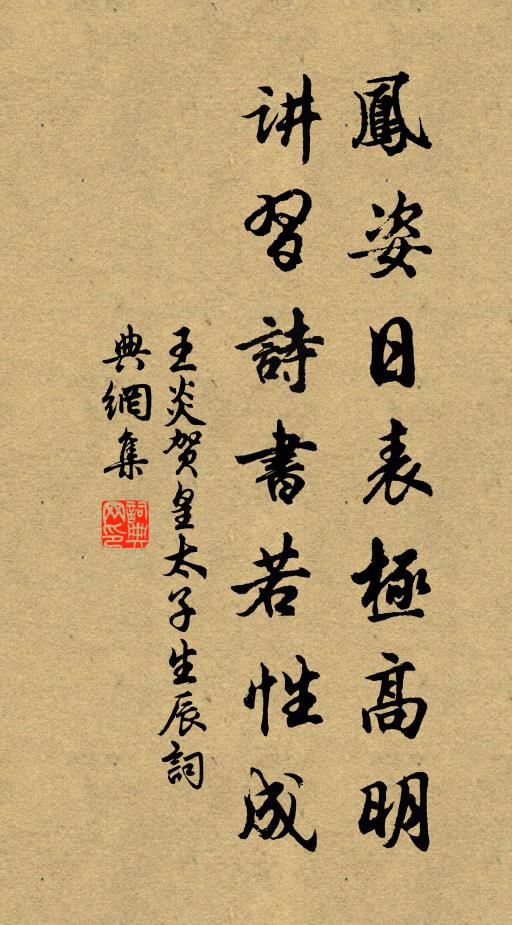 鳳姿日表極高明
讲習詩書若性成
王炎贺皇太子生辰詞
典網集
詞典網印